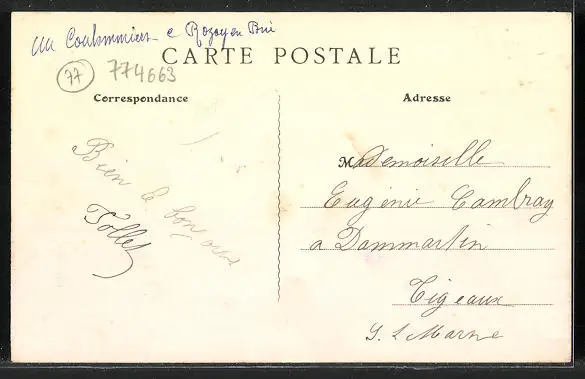 Coulommiers e Rozoy en Brie
CARTE POSTALE
77 774663
Correspondance
Adresse
Bien le bon
Mademoiselle
Eugénie Cambray
a Dammartin
Tigeaux
S. & Marne